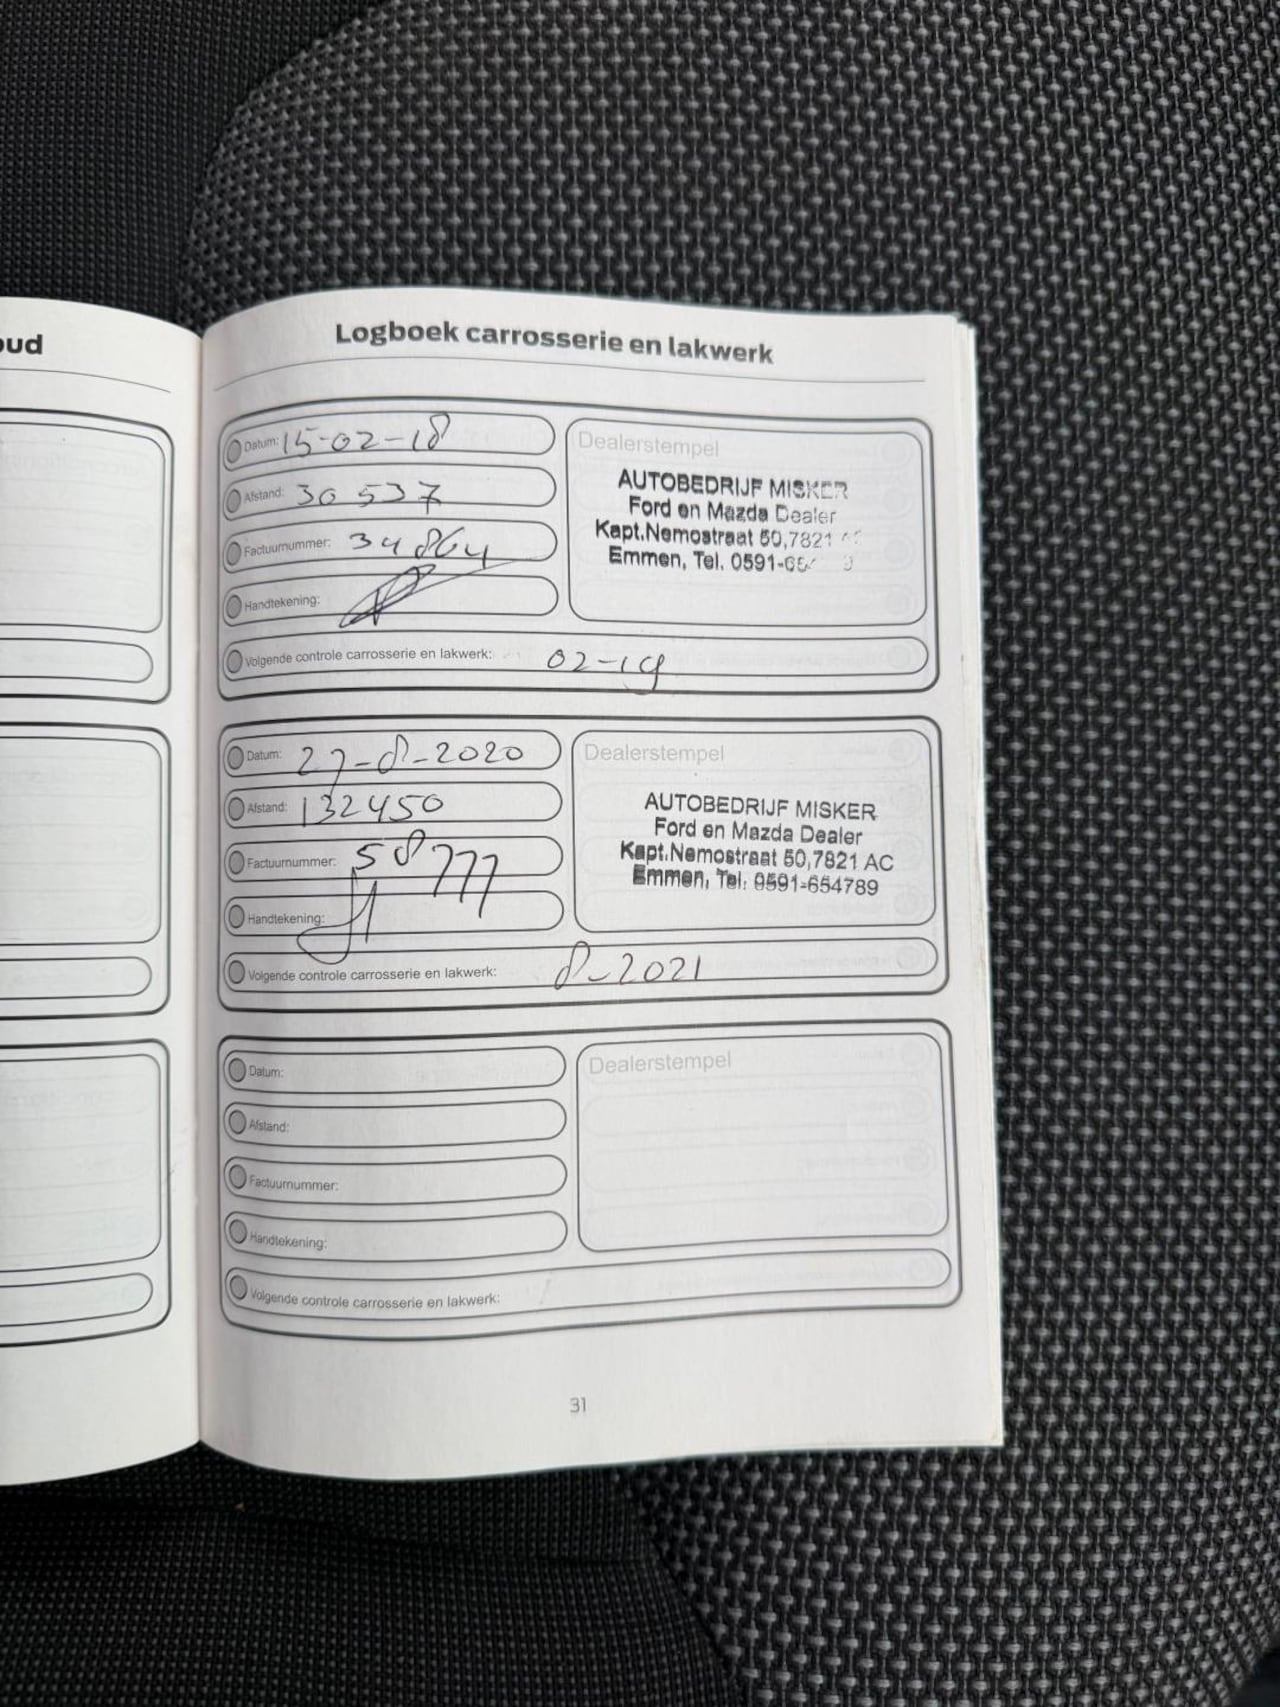 oud
Logboek carrosserie en lakwerk
Datum: 15-02-18
Afstand: 30 537
Factuurnummer: 34864
Handtekening:
Dealerstempel
AUTOBEDRIJF MISKER
Ford en Mazda Dealer
Kapt.Nemostraat 50,7821
Emmen, Tel. 0591-
Volgende controle carrosserie en lakwerk: 02-19
Datum: 27-8-2020
Afstand: 132450
Factuurnummer: 58777
Handtekening:
Dealerstempel
AUTOBEDRIJF MISKER
Ford en Mazda Dealer
Kapt.Nemostraat 50,7821 AC
Emmen, Tel. 0591-654789
Volgende controle carrosserie en lakwerk: 8-2021
Datum:
Afstand:
Factuurnummer:
Handtekening:
Dealerstempel
Volgende controle carrosserie en lakwerk:
31